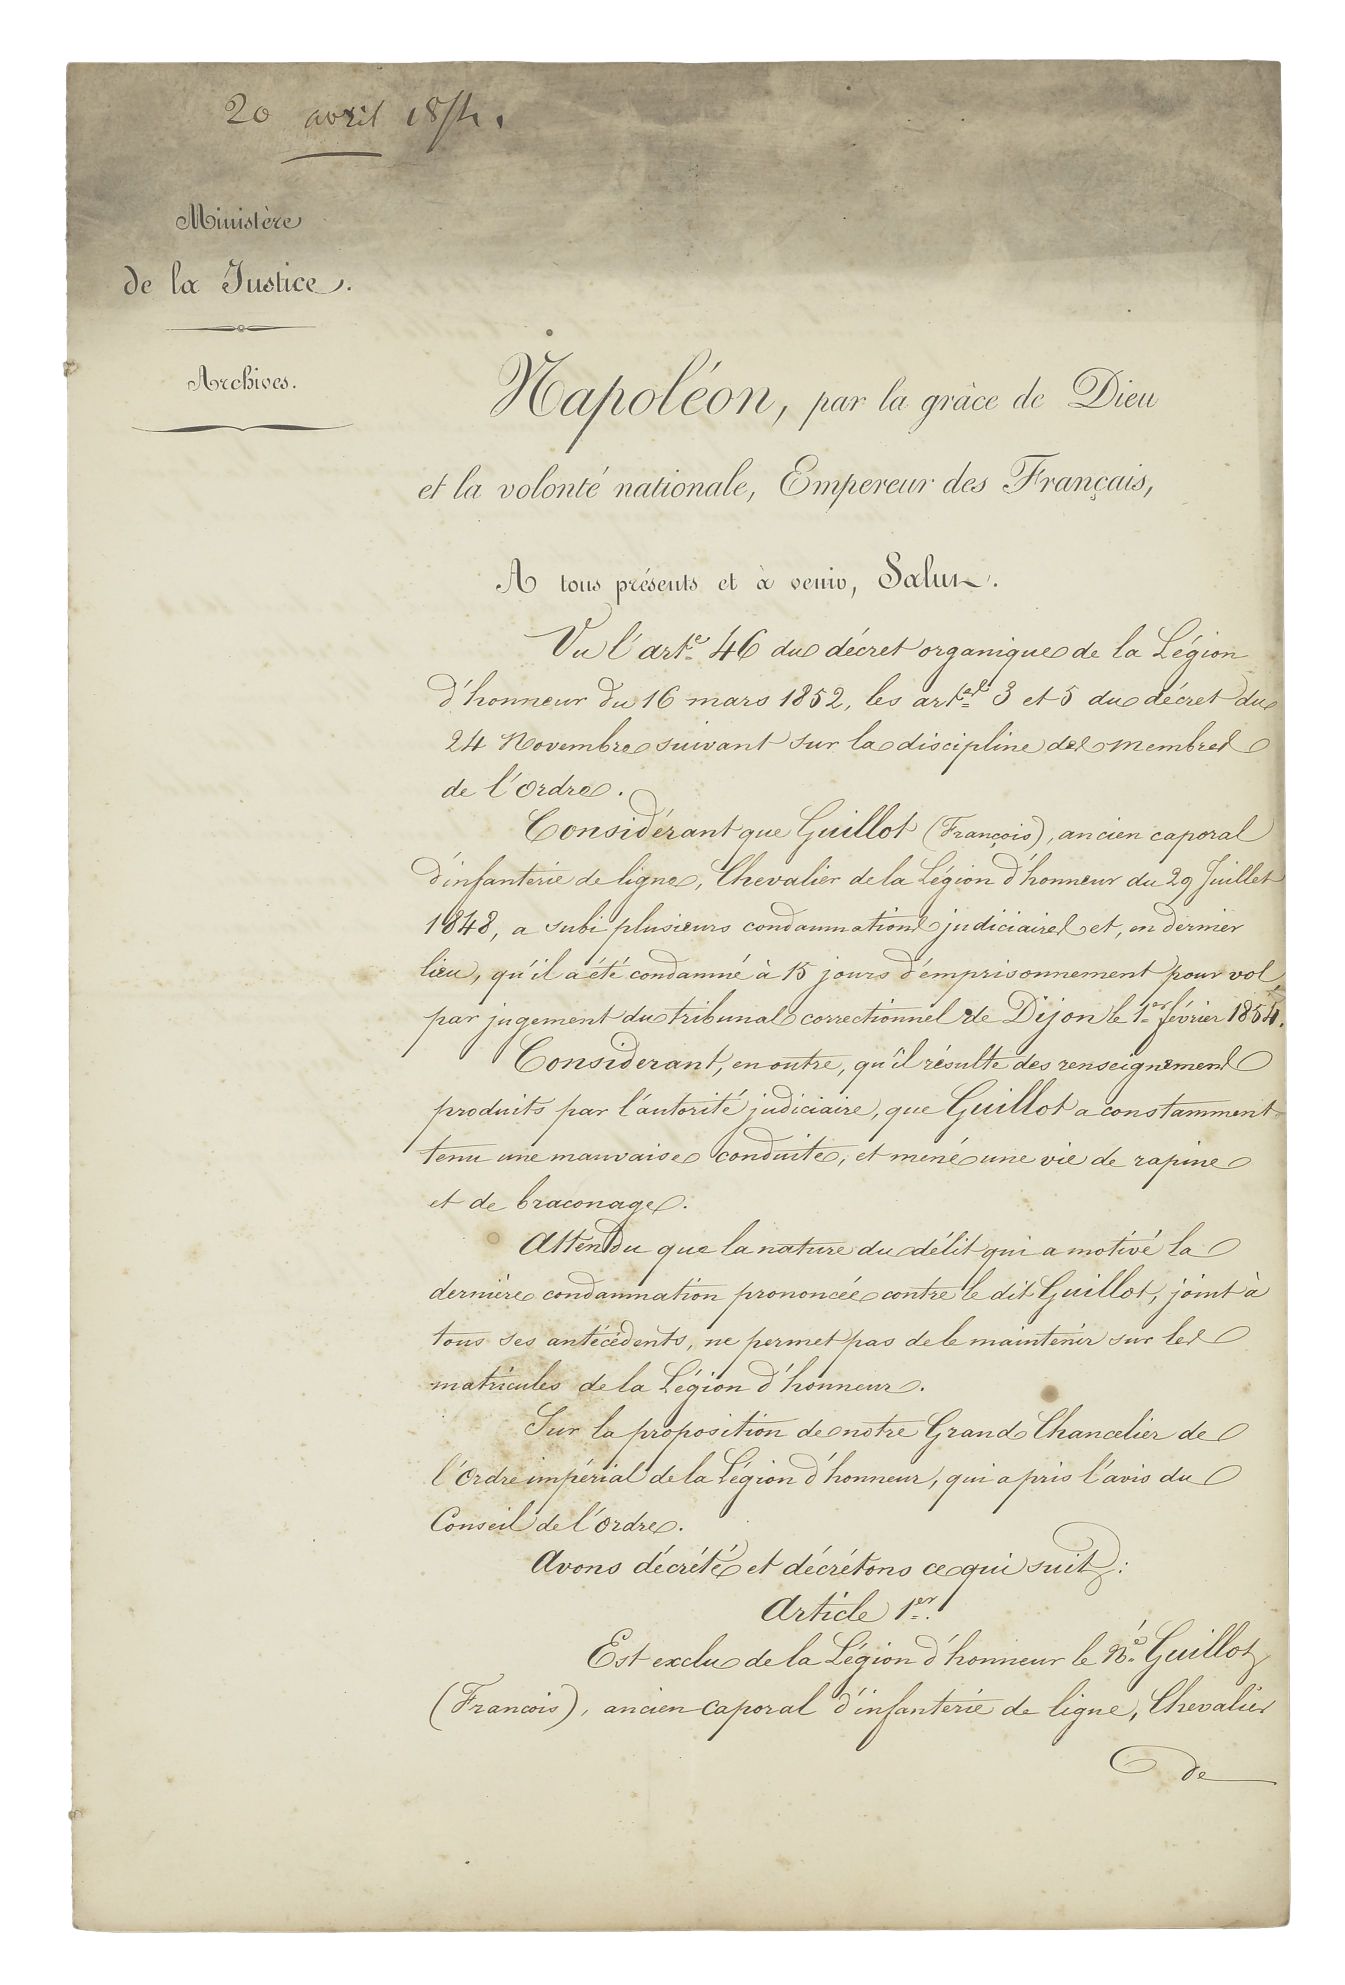 20 avril 1854.
Ministère
de la Justice.
Archives.
Napoléon, par la grâce de Dieu
et la volonté nationale, Empereur des Français,
A tous présents et à venir, Salut.
Vu l'art.e 46 du décret organique de la Légion
d'honneur du 16 mars 1852, les art.es 3 et 5 du décret du
24 Novembre suivant sur la discipline des membres
de l'Ordre.
Considérant que Guillot (François), ancien caporal
d'infanterie de ligne, Chevalier de la Légion d'honneur du 29 Juillet
1848, a subi plusieurs condamnations judiciaires et, en dernier
lieu, qu'il a été condamné à 15 jours d'emprisonnement pour vol,
par jugement du tribunal correctionnel de Dijon le 1.er février 1854.
Considerant, en outre, qu'il résulte des renseignements
produits par l'autorité judiciaire, que Guillot a constamment
tenu une mauvaise conduite, et mené une vie de rapine
et de braconage.
Attendu que la nature du délit qui a motivé la
dernière condamnation prononcée contre le dit Guillot, joint à
tous ses antécédents, ne permet pas de le maintenir sur les
matricules de la Légion d'honneur.
Sur la proposition de notre Grand Chancelier de
l'Ordre impérial de la Légion d'honneur, qui a pris l'avis du
Conseil de l'Ordre.
Avons décrété et décrétons ce qui suit :
Article 1.er
Est exclu de la Légion d'honneur le N.é Guillot
(Francois), ancien caporal d'infanterie de ligne, Chevalier
de